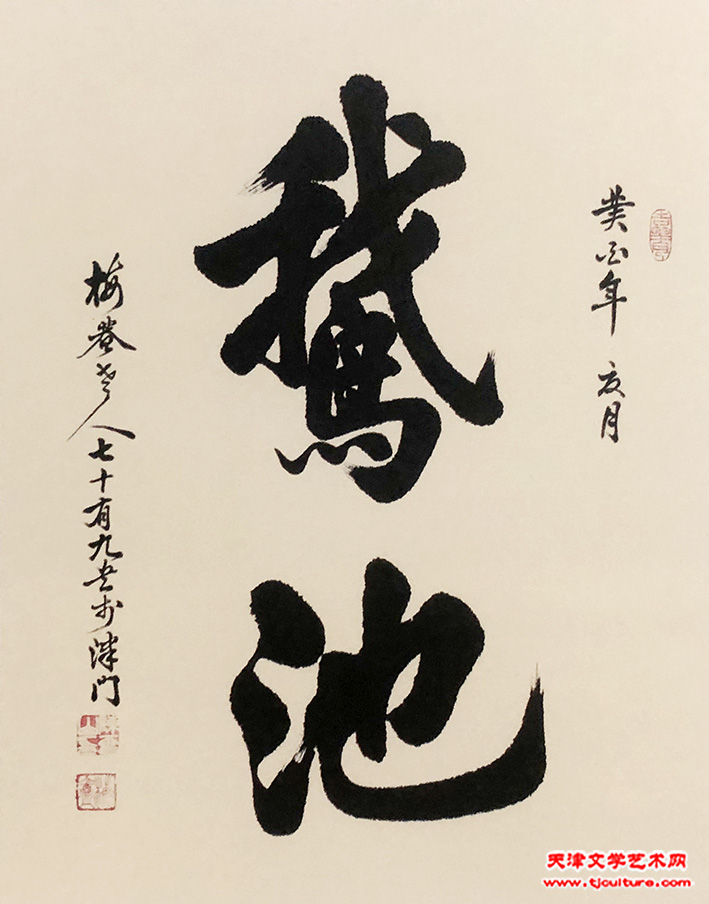 癸年 月
鵞池
梅菴老人七十有九书於津门
天津文学艺术网
www.tjculture.com